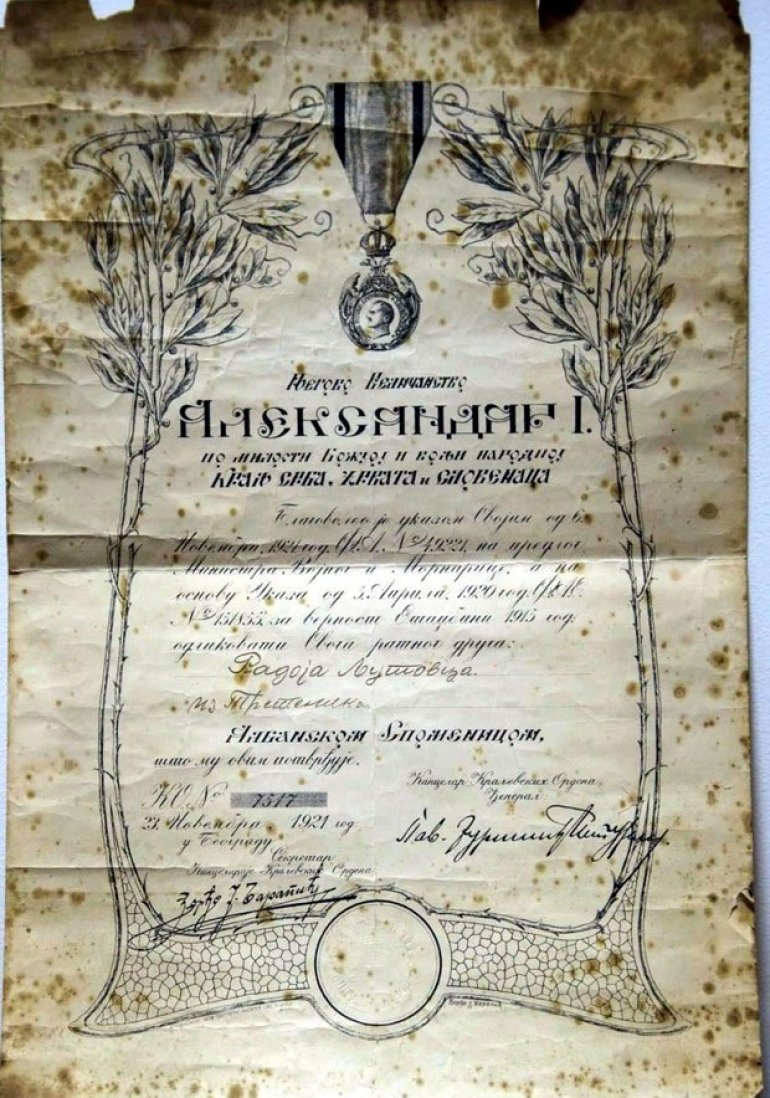 Његово Величанство
Александар I.
по милости Божјој и вољи народној
Краљ Срба, Хрвата и Словенаца
Благоволео је указом Својим од 6.
Новембра, 1921 год. Ф.А. № 4221, на предлог
Министра Војног и Морнарице, а на
основу Указа од 5. Априла, 1920 год.
№ 15185, за верност Отаџбини 1915 год.
одликовати Свога ратног друга:
Радоја Лутовца.
из Трстеника
Албанском Споменицом,
што му овим потврђује.
Канцелар Краљевских Ордена,
Ђенерал
К.О. № 7517
23. Новембра 1921 год.
у Београду
Секретар
Канцеларије Краљевских Ордена
Пав.